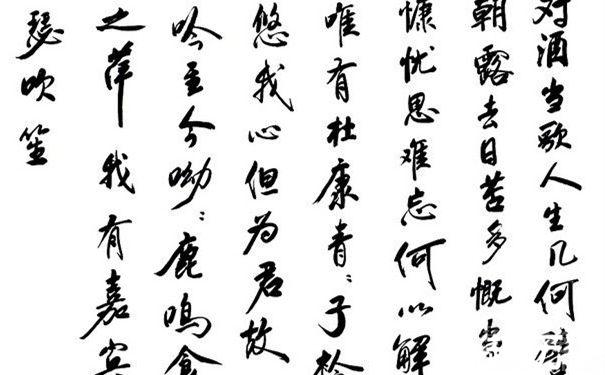 对酒当歌人生几何
朝露去日苦多慨
慷忧思难忘何以解
唯有杜康青々子衿
悠我心但为君故
吟至今呦々鹿鸣食
之苹我有嘉宾
瑟吹笙